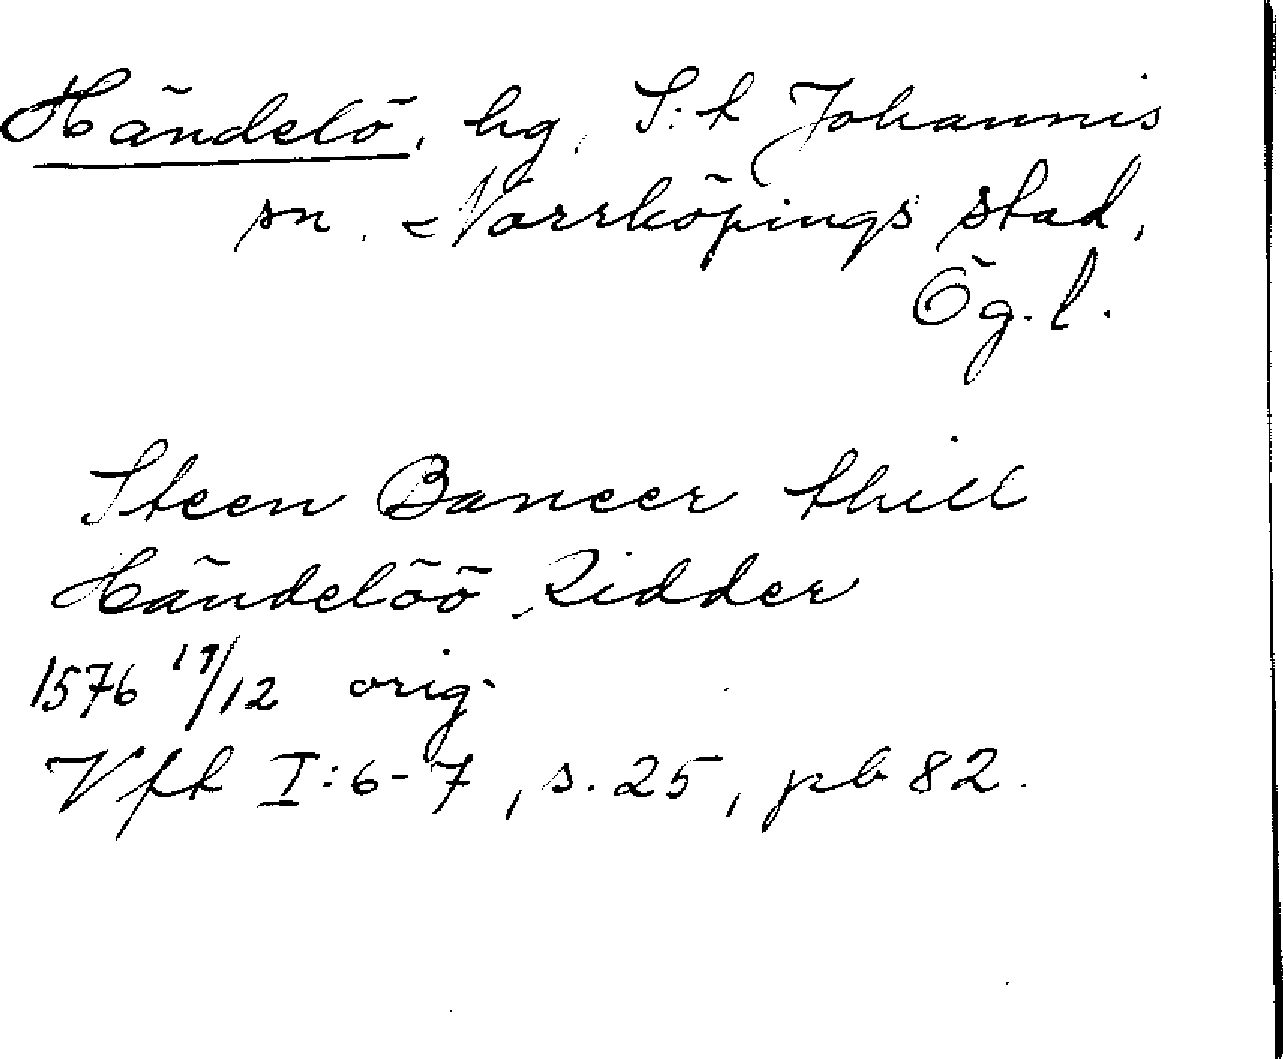 Händelö, hg, S:t Johannis
sn. Norrköpings stad,
Ög. l.
Steen Baneer thill
Händelöö Ridder
1576 19/12 orig.
Vfk I:6-7, s. 25, pb 82.